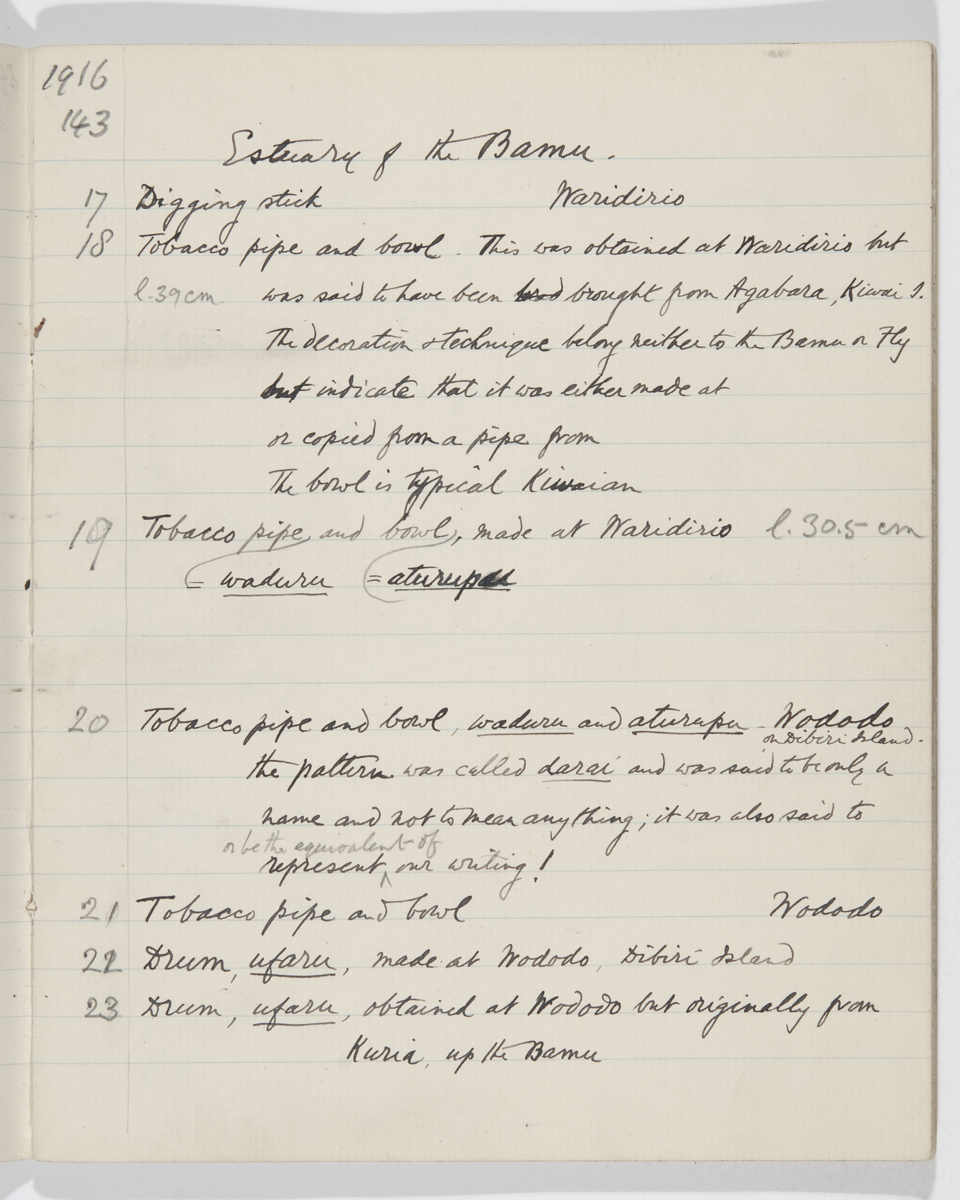 1916
143
Estuary of the Bamu.
17 Digging stick Waridirio
18 Tobacco pipe and bowl. This was obtained at Waridirio but
l. 39 cm was said to have been brought from Agabara, Kiwai I.
The decoration & technique belong neither to the Bamu or Fly
but indicate that it was either made at
or copied from a pipe from
The bowl is typical Kiwaian
19 Tobacco pipe and bowl, made at Waridirio l. 30.5 cm
= waduru = aturupu
20 Tobacco pipe and bowl, waduru and aturupu - Wododo
on Dibiri Island.
the pattern was called darai and was said to be only a
name and not to mean anything; it was also said to
or be the equivalent of
represent, our writing!
21 Tobacco pipe and bowl Wododo
22 Drum, ufaru, made at Wododo, Dibiri Island
23 Drum, ufaru, obtained at Wododo but originally from
Kuria, up the Bamu